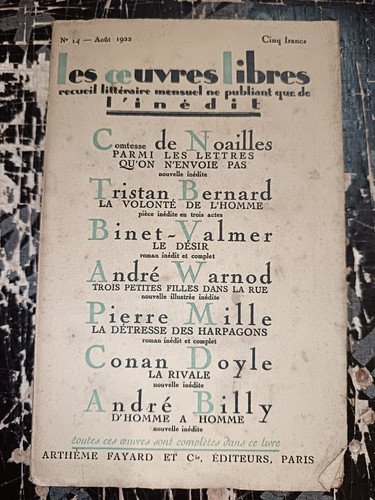 Nº 14 — Août 1922 Cinq francs
Les œuvres libres
recueil littéraire mensuel ne publiant que de
l'inédit
Comtesse de Noailles
PARMI LES LETTRES
QU'ON N'ENVOIE PAS
nouvelle inédite
Tristan Bernard
LA VOLONTÉ DE L'HOMME
pièce inédite en trois actes
Binet-Valmer
LE DÉSIR
roman inédit et complet
André Warnod
TROIS PETITES FILLES DANS LA RUE
nouvelle illustrée inédite
Pierre Mille
LA DÉTRESSE DES HARPAGONS
roman inédit et complet
Conan Doyle
LA RIVALE
nouvelle inédite
André Billy
D'HOMME A HOMME
nouvelle inédite
toutes ces œuvres sont complètes dans ce livre
ARTHÈME FAYARD ET Cie, ÉDITEURS, PARIS